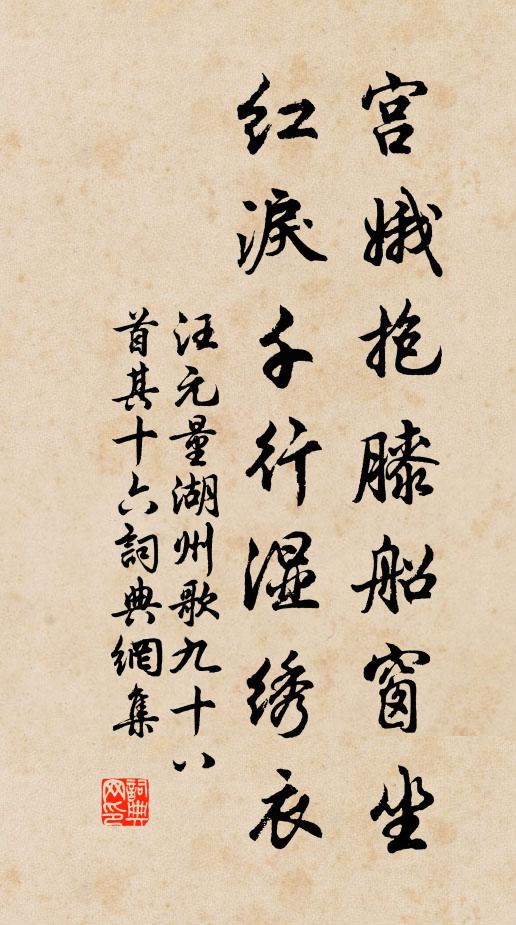 宫娥抱膝船窗坐
红淚千行湿绣衣
汪元量湖州歌九十八
首其十六詞典網集
詞典網印